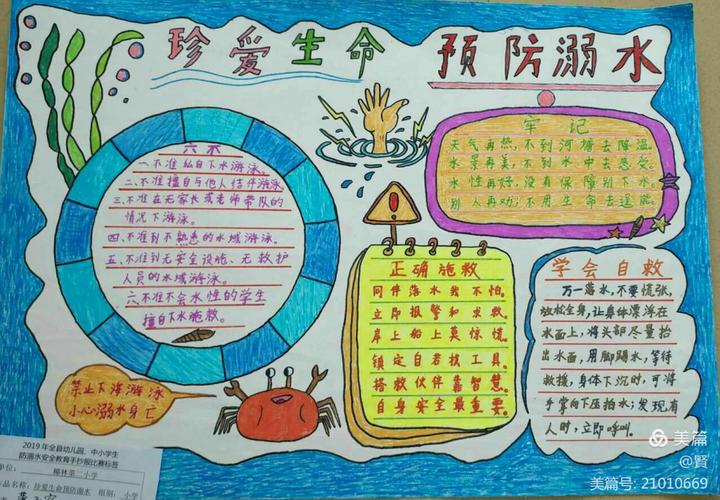 珍爱生命 预防溺水
六不
一、不准私自下水游泳。
二、不准擅自与他人结伴游泳。
三、不准在无家长或老师带队的
情况下游泳。
四、不准到不熟悉的水域游泳。
五、不准到无安全设施、无救护
人员的水域游泳。
六、不准不会水性的学生
擅自下水施救。
牢记
天气再热,不到河塘去降温。
水景再美,不到水中去
水性再好,没有保障别下水。
别人再劝,不用生命去逞能。
正确施救
同伴落水我不怕。
立即报警和求救。
岸上船上莫惊慌。
镇定自若找工具。
搭救伙伴靠智慧。
自身安全最重要。
学会自救
万一落水,不要慌张,
放松全身,让身体漂浮在
水面上,将头部尽量抬
出水面,用脚踢水,等待
救援,身体下沉时,可将
手掌向下压拍水;发现有
人时,立即呼叫。
禁止下海游泳
小心溺水身亡
2019年全县幼儿园、中小学生
防溺水安全教育手抄报比赛标签
单位: 柳林第二小学
作品名称: 珍爱生命预防溺水 组别: 小学
美篇
@賢
美篇号: 21010669